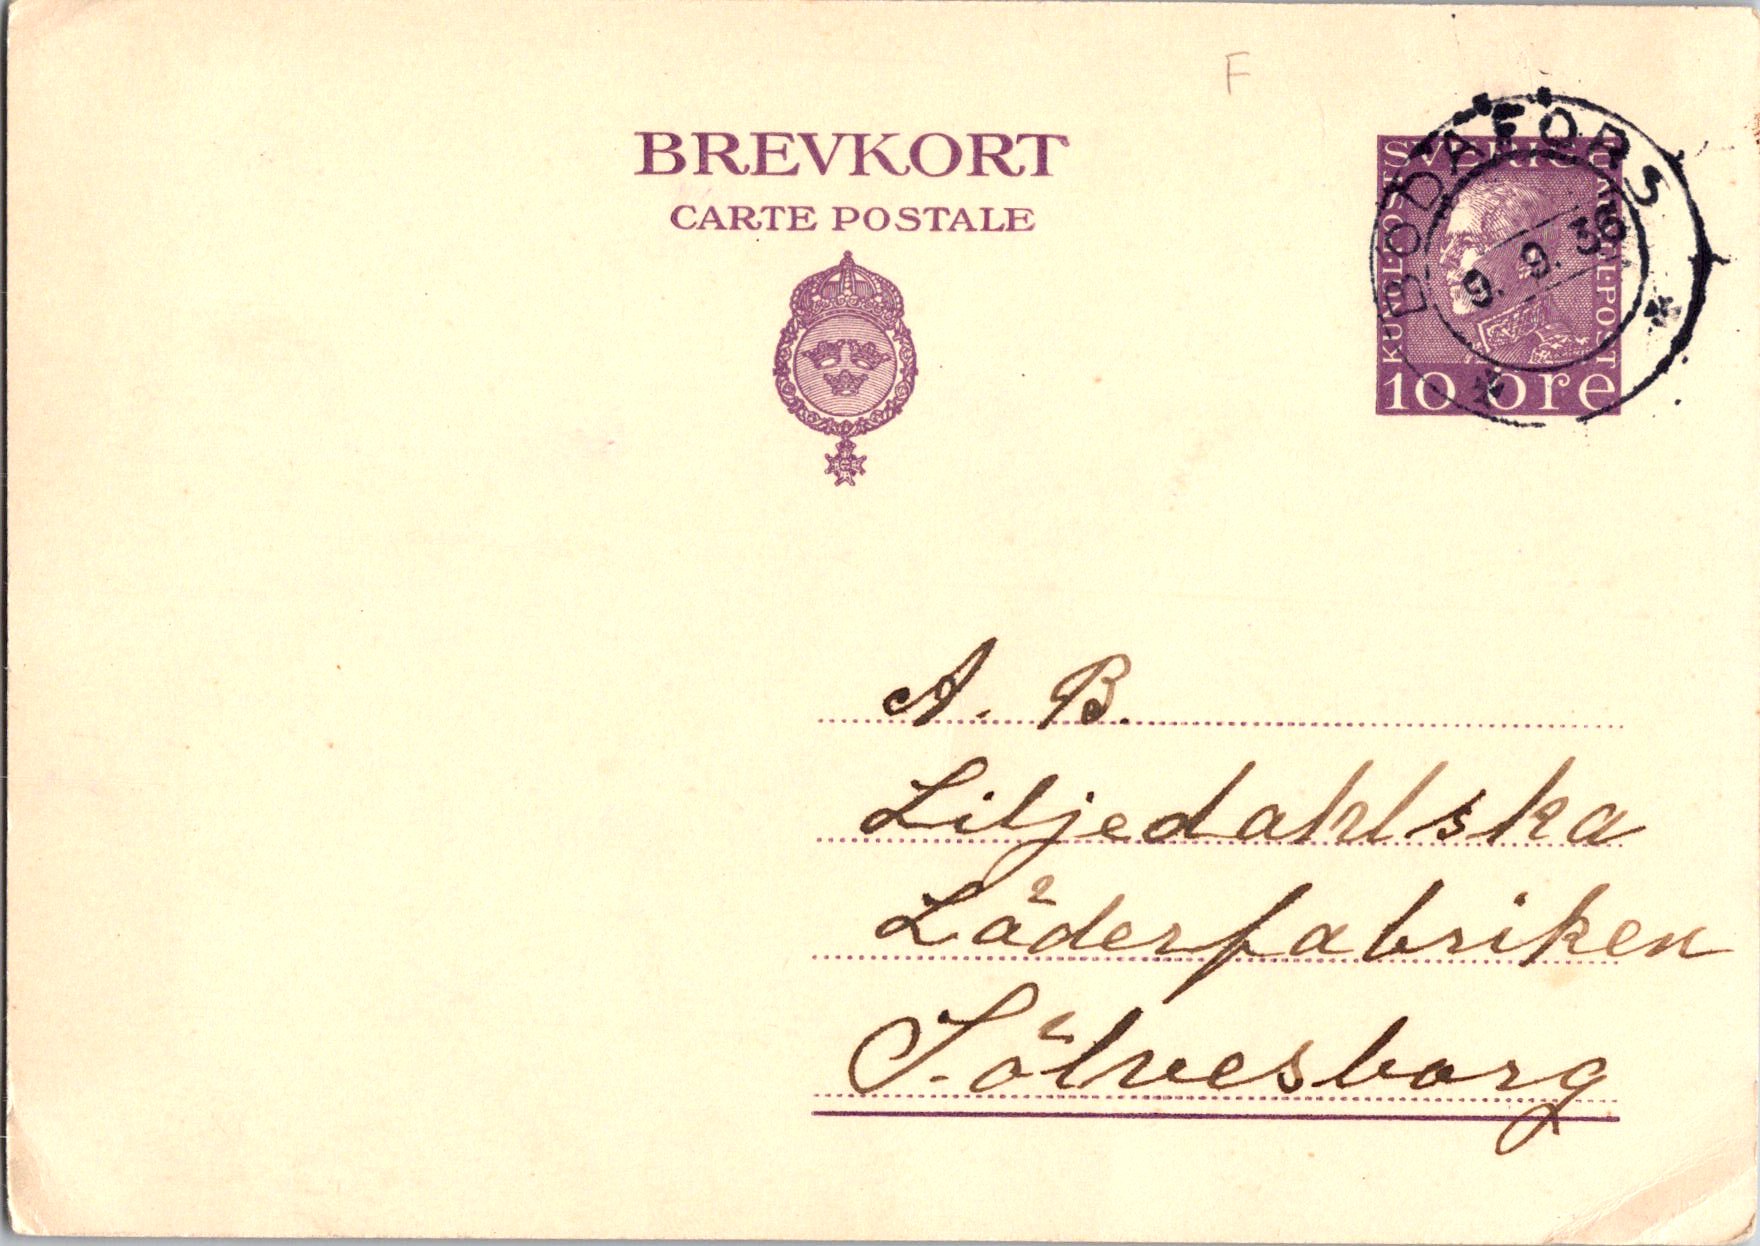 F
BREVKORT
CARTE POSTALE
BODAFORS
9. 9. 36
SVERIGE
KUNGL·POST
KUNGL·POST
10 öre
A. B.
Liljedahlska
Läderfabriken
Sölvesborg